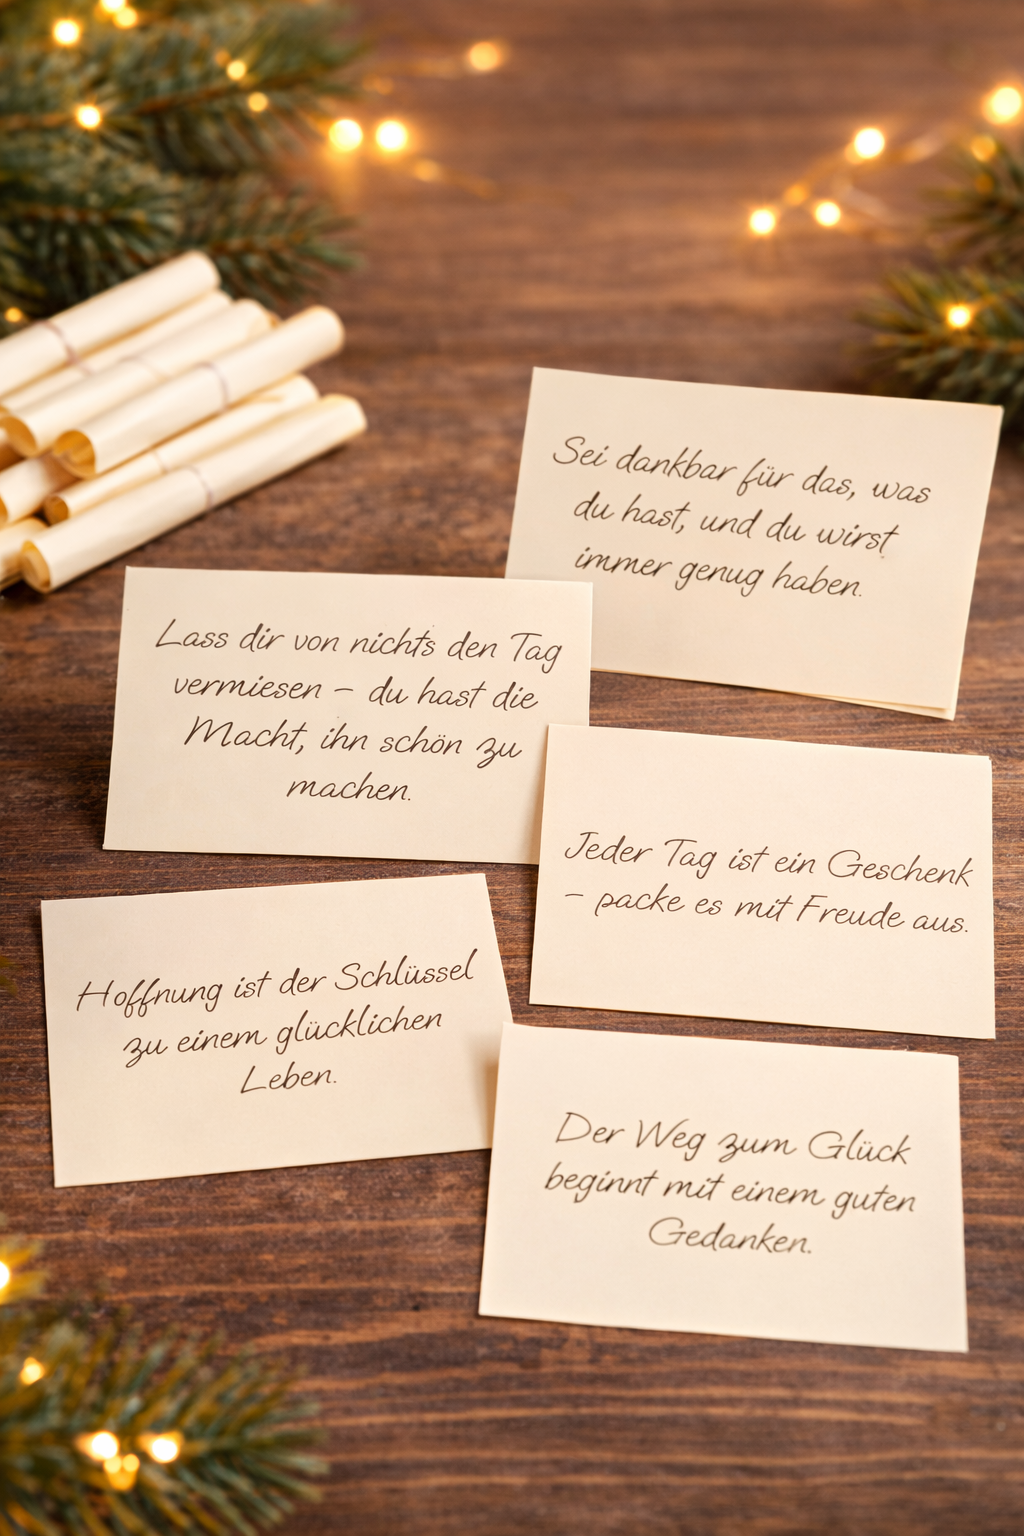 Sei dankbar für das, was
du hast, und du wirst
immer genug haben.
Lass dir von nichts den Tag
vermiesen – du hast die
Macht, ihn schön zu
machen.
Jeder Tag ist ein Geschenk
– packe es mit Freude aus.
Hoffnung ist der Schlüssel
zu einem glücklichen
Leben.
Der Weg zum Glück
beginnt mit einem guten
Gedanken.